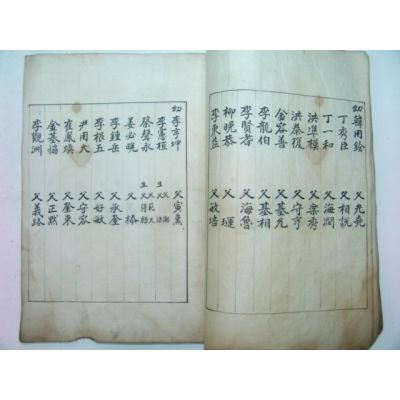 幼 韓用銓 父允堯
丁秀臣 父相說
丁一和 父海潤
洪準模 父樂秀
洪泰復 父守亨
金容善 父基允
李龍伯 父基相
李賢耆 父海魯
柳晩恭 父
李東益 父敏培
幼 李亨坤 父寅薰
李憲植
蔡聲永
姜必晩 父椿
李鍾岳 父承奎
李根五 父好敏
尹用大 父守容
崔鳳煥 父奎東
金基悳 父正黙
李觀洲 父義路